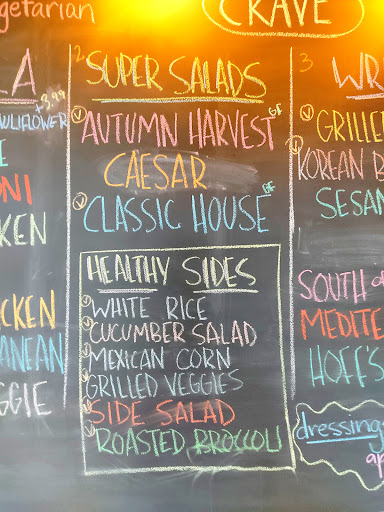 vegetarian
CRAVE
LA
+3.99
CAULIFLOWER
NI
KEN
CKEN
ANEAN
GGIE
2 SUPER SALADS
V AUTUMN HARVEST GF
CAESAR
V CLASSIC HOUSE GF
HEALTHY SIDES
V WHITE RICE
V CUCUMBER SALAD
V MEXICAN CORN
V GRILLED VEGGIES
V SIDE SALAD
V ROASTED BROCCOLI
3 WR
V GRILLE
V KOREAN B
SESAM
SOUTH
MEDITE
HOFF'S
dressing